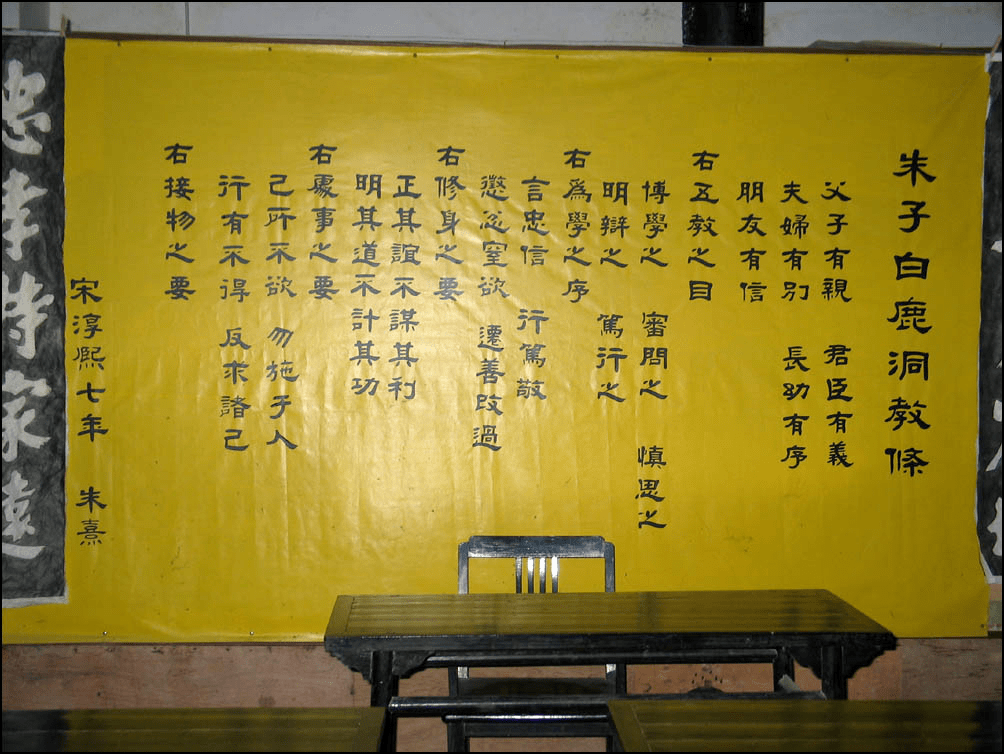 朱子白鹿洞教條
父子有親 君臣有義
夫婦有別 長幼有序
朋友有信
右五教之目
博學之 審問之 慎思之
明辯之 篤行之
右為學之序
言忠信 行篤敬
懲忿窒欲 遷善改過
右修身之要
正其誼不謀其利
明其道不計其功
右處事之要
己所不欲 勿施于人
行有不得 反求諸己
右接物之要
宋淳熙七年 朱熹
忠孝持家遠